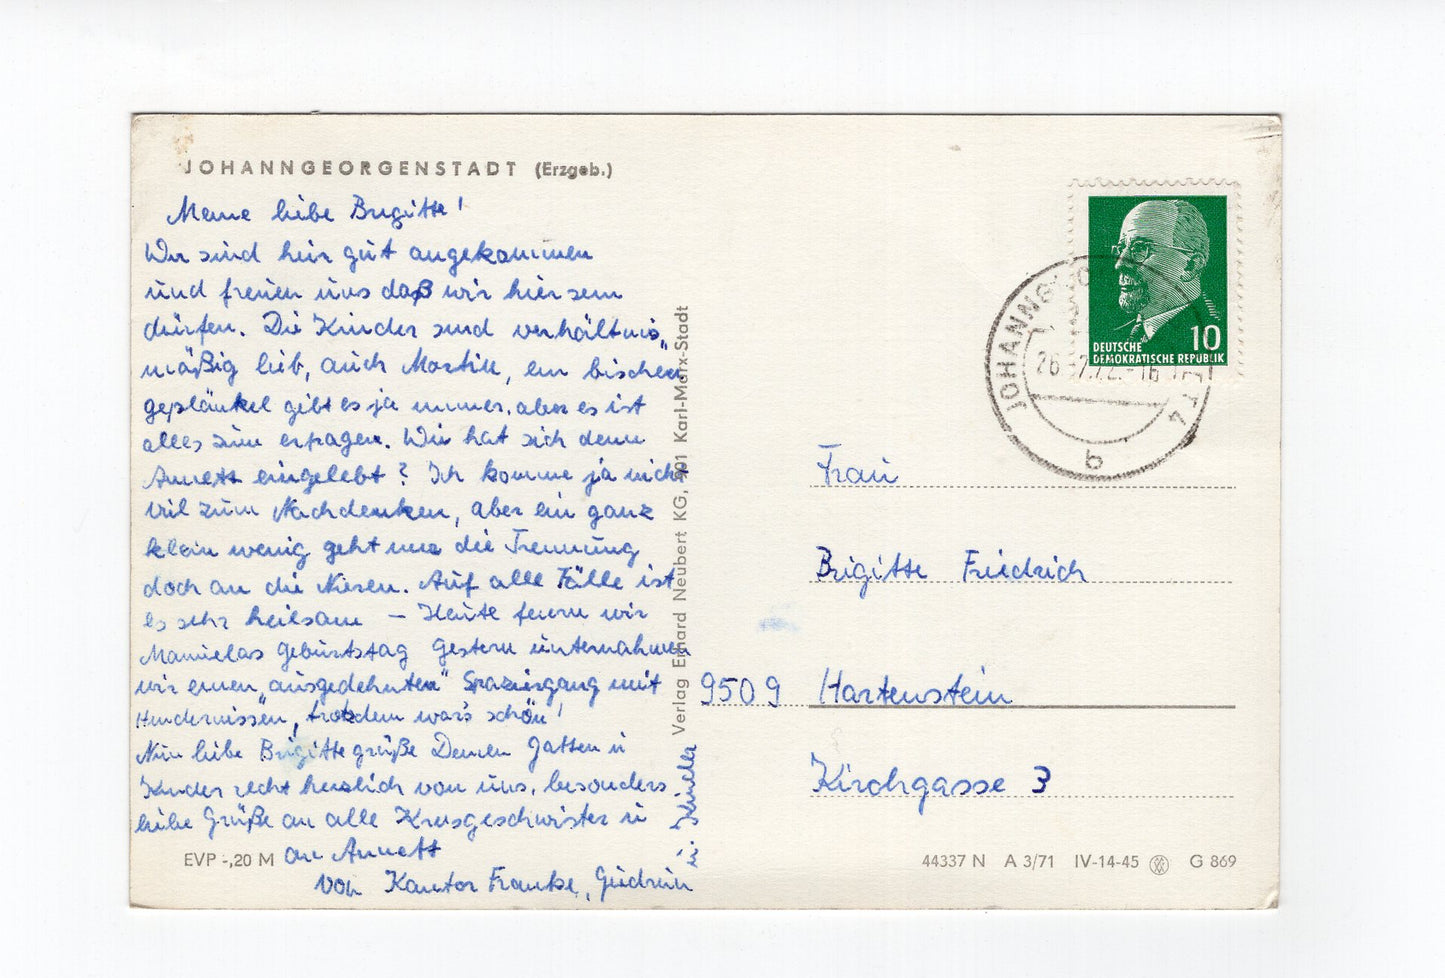 JOHANNGEORGENSTADT (Erzgeb.)
Meine liebe Brigitte!
Wir sind hier gut angekommen
und freuen uns daß wir hier sein
dürfen. Die Kinder sind verhältnis„
mäßig lieb, auch Martin, ein bischen
geplänkel gibt es ja immer, aber es ist
alles zum ertragen. Wie hat sich denn
Annett eingelebt? Ich komme ja nicht
viel zum Nachdenken, aber ein ganz
klein wenig geht mir die Trennung
doch an die Nieren. Auf alle Fälle ist
es sehr heilsam – Heute feiern wir
Manuelas Geburtstag gestern unternahmen
wir einen „ausgedehnten" Spaziergang mit
Hindernissen, trotzdem war's schön!
Nun liebe Brigitte grüße Deinen Gatten u
Kinder recht herzlich von uns, besonders
liebe Grüße an alle Kreisgeschwister u
an Annett
von Kantor Franke, Gudrun
u. Kinder
EVP -,20 M
Verlag Erhard Neubert KG, 901 Karl-Marx-Stadt
DEUTSCHE
DEMOKRATISCHE REPUBLIK
10
JOHANNGEO
26. 7.72.-16
b
Frau
Brigitte Friedrich
9509 Hartenstein
Kirchgasse 3
44337 N A 3/71 IV-14-45 G 869